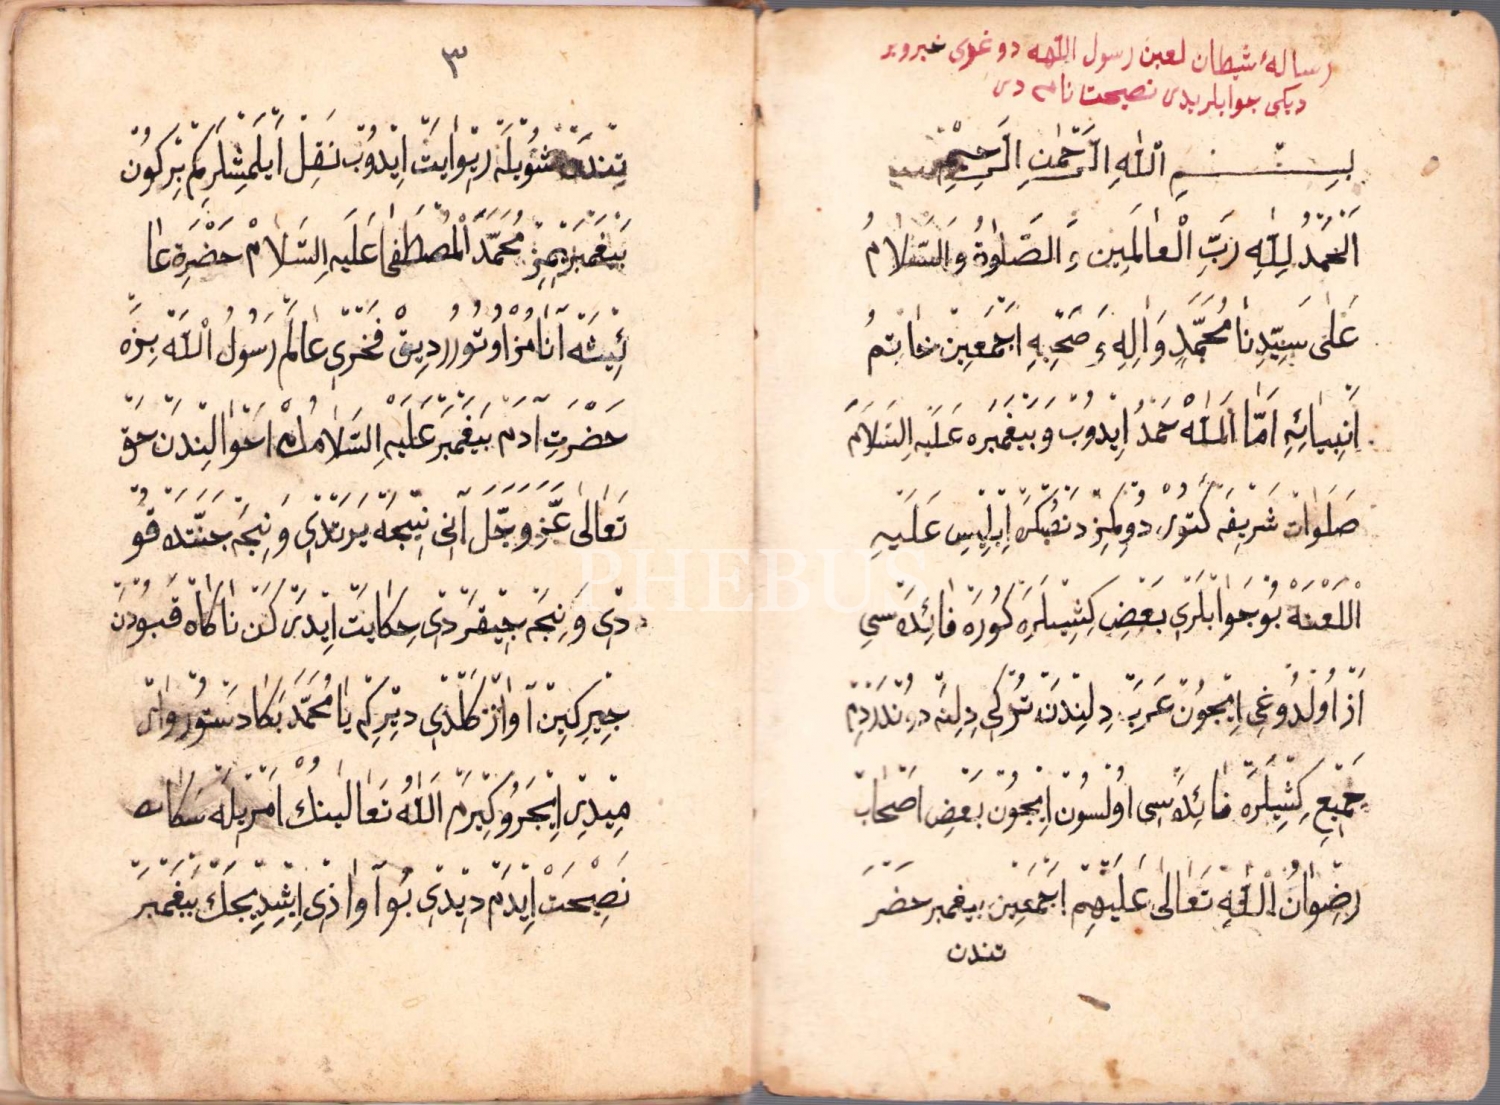 رسالۀ شیطان لعین رسول اللهه دوغری خبر ویر
دیکی جوابلریدر نصیحت نامه در
بسم الله الرحمن الرحیم
اَلْحَمْدُ لِلّٰهِ رَبِّ الْعَالَمِین وَ الصَّلٰوةُ وَالسَّلَامُ
عَلٰی سَیِّدِنَا مُحَمَّدٍ وَاٰلِهِ وَ صَحْبِهِ اَجْمَعِینَ خَاتِمُ
اَنْبِیَائِهِ اَمَّا اَللّٰهْ حَمْدُ اِیدُوبْ وَ پَیغَمْبَرَه عَلَیهِ السَّلَامَ
صَلَوات شَرِیفَه کَتُورْ دُوکِمِزْدَنْصُکْرَه اِبْلِیسِ عَلَیهِ
اللَّعْنَهْ بُو جَوَابْلَرِی بَعْضِ کِشِیلَرَه کُورَه فَائِدَه سِی
اَزْ اُولْدُوغِی اِیچُونْ عَرَبْ دِلِنْدَنْ تُرْکِی دِلِنَه دُونْدَرْدِمْ
جَمِیعِ کِشِیلَرَه فَائِدَه سِی اُولْسُونْ اِیچُونْ بَعْضِ اَصْحَابْ
رِضْوَانُ اللّٰهِ تَعَالٰی عَلَیْهِمْ اَجْمَعِینْ پیغمبر حَضْرَ
تندن
٣
تِنْدَنْ شُویْلَه رِیوَایَتْ اِیدُوبْ نَقِلْ اَیلَمِشْلَرْکِمْ بِرْکُونْ
پَیغَمْبَرِیمِزْ مُحَمَّدْ اَلْمُصْطَفٰی عَلَیهِ السَّلَامْ حَضْرَة عَا
ئِیشَه اٰنَامُزْ اُوتُورُرْدِیقْ فَخْرِی عَالَمْ رَسُولُ اللّٰه بِزَه
حَضْرَتِ اٰدَمْ پَیغَمْبَرْ عَلَیهِ السَّلَامُڭ اَحْوَالِندَن حَقْ
تَعَالٰی عَزَّ وَجَلَّ اٰنِی نِیجَه یَرَتْدِی وَ نِیجَه جَنَّتْدَه قُو
دِی وَ نِیجَه چِیقَرْدِی حِکَایَتْ اِیدَرْکَنْ نَاکَاه قَپُودَنْ
چِیرکِین اٰوَازْ کَلْدِی دِیرْکِمْ یَا مُحَمَّدْ بَکَا دَسْتُورْ وَارْ
مِیدِر اِیچَرُو کِیرَمْ اَللّٰهُ تَعَالٰینِكْ اَمْرِیلَه سَکَا
نَصِیحَتْ اِیدَمْ دِیدِی بُو اٰوَازِی اِیشِدِیجَكْ پَیغَمْبَرْ
PHEBUS